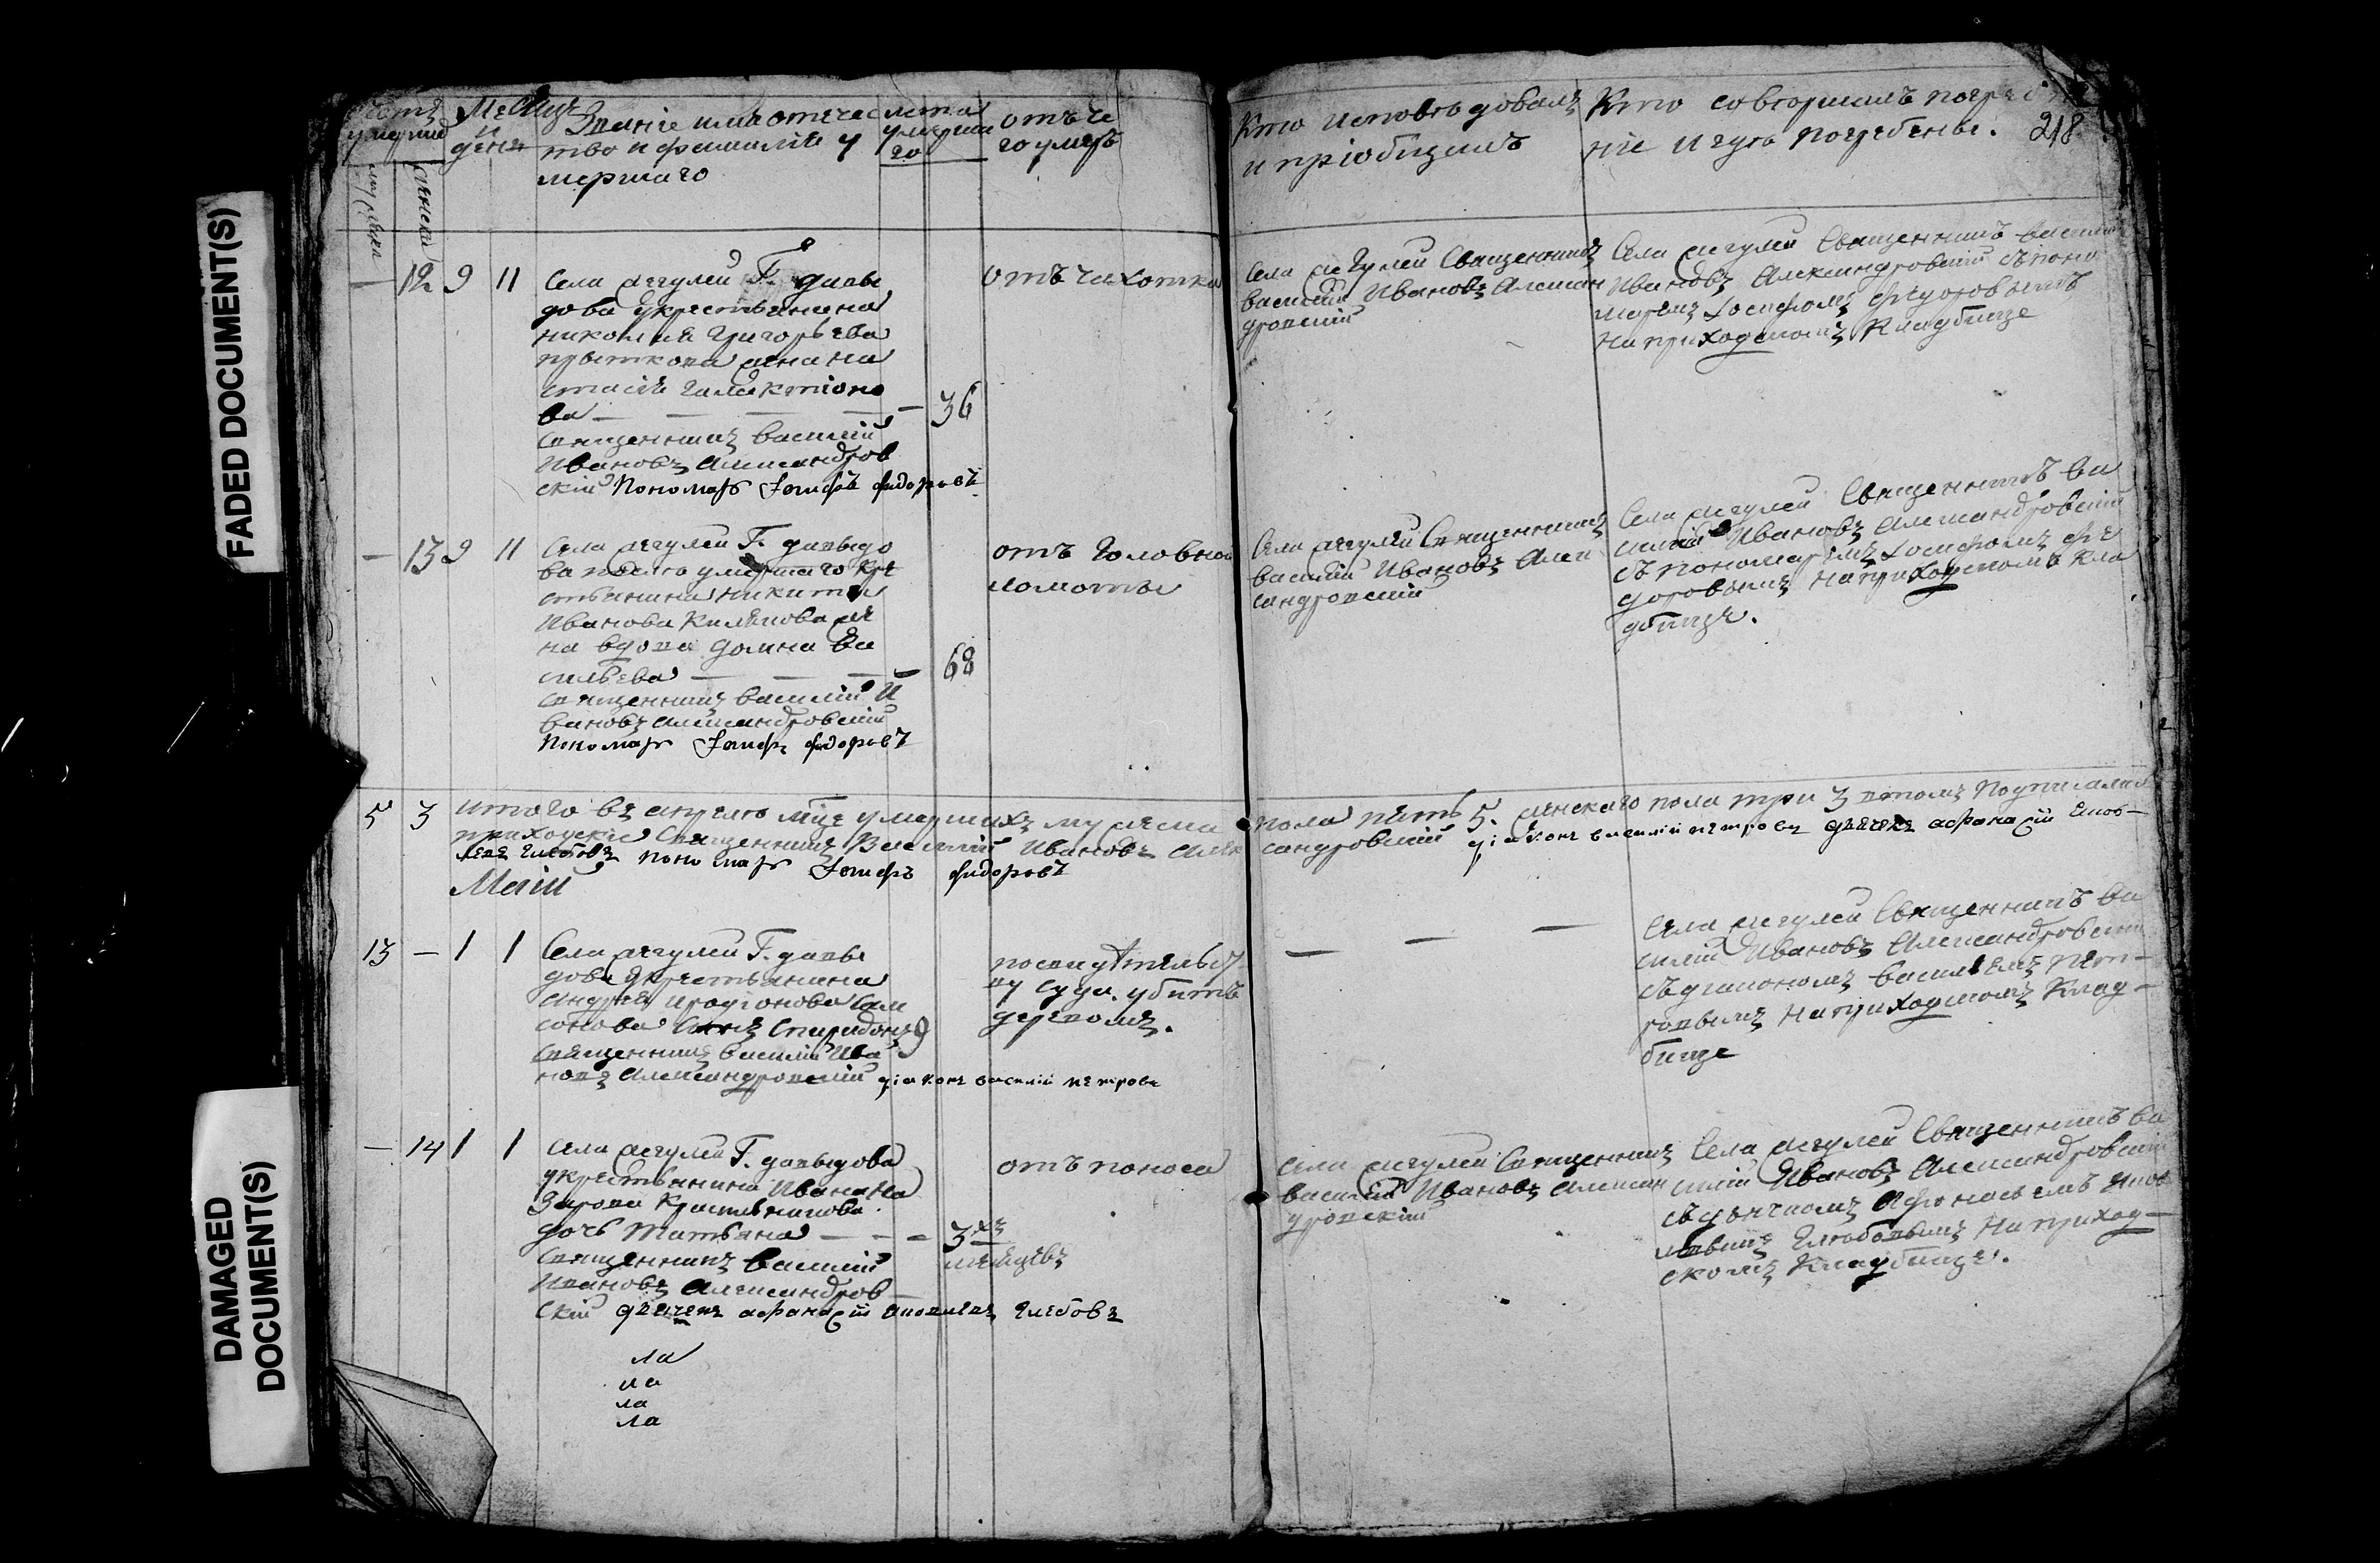 FADED DOCUMENT(S)
DAMAGED
DOCUMENT(S)
Месяцъ
и
день
Званіе имя отечес
тво и фамилія у
мершаго
лета
умерша
го
отъ че
го умеръ
Кто исповѣдовалъ
и пріобщалъ
Кто совершалъ погребе
ніе и гдѣ погребены.
218
женска
— 12 9 11
Села Жегулей Г. давы
дова крестьянина
николая Григорьева
прыткова жена на
стасія Галактіоно
ва — — — — 36
священникъ василій
Ивановъ Александров
скій Пономарь Іосифъ федоровъ
отъ чахотки
Села Жегулей Священникъ
василій Ивановъ Алексан
дровскій
Села Жегулей Священникъ васили
Ивановъ Александровскій съ поно
маремъ Іосифомъ федоровымъ
на приходскомъ кладбище
— 13 9 11
Села Жегулей Г. давыдо
ва умершаго кре
стьянина никиты
Иванова жe
на вдова домна ва
сильева — — — — 68
священникъ василій И
вановъ александровскій
Пономарь Іосифъ федоровъ
отъ головной
ломоты
Села Жегулей Священникъ
василій Ивановъ Алек
сандровскій
Села Жегулей Священникъ ва
силій Ивановъ Александровскій
съ пономаремъ Іосифомъ фе
доровымъ на приходскомъ кла
дбище.
5 3 итого въ апреле мце умершихъ мужеска пола пять 5. женскаго пола три 3 въ томъ подписались
приходскіе Священникъ Василій Ивановъ Алек сандровскій діаконъ василій петровъ дьячекъ афанасій Ипов—
Глебовъ пономарь Іосифъ федоровъ
Маій
13 — 1 1
Села Жегулей Г. давы
дова крестьянина
андрея Иродіонова Сам
сонова Сынъ Спиридонъ 9
Священникъ василій Ива
новъ Александровскій діаконъ василій петровъ
по свидѣтельст
ву суда. убитъ
деревомъ.
— — —
Села Жегулей Священникъ ва
силій Ивановъ Александровскій
съ діакономъ васильемъ пет—
ровымъ на приходскомъ клад—
бище
— 14 1 1
Села Жегулей Г. давыдова
крестьянина Ивана На
зарова Красильникова
дочь Татьяна — — — 3хъ
месяцевъ
Священникъ василій
Ивановъ Александров—
скій дьячекъ афанасій Глебовъ
отъ поноса
Села Жегулей Священникъ
василій Ивановъ Алексан
дровскій
Села Жегулей Священникъ ва
силій Ивановъ Александровскій
съ дьячкомъ Афонасьемъ Ипов
Глебовымъ на приход—
скомъ Кладбище.
ла
ла
ла
ла